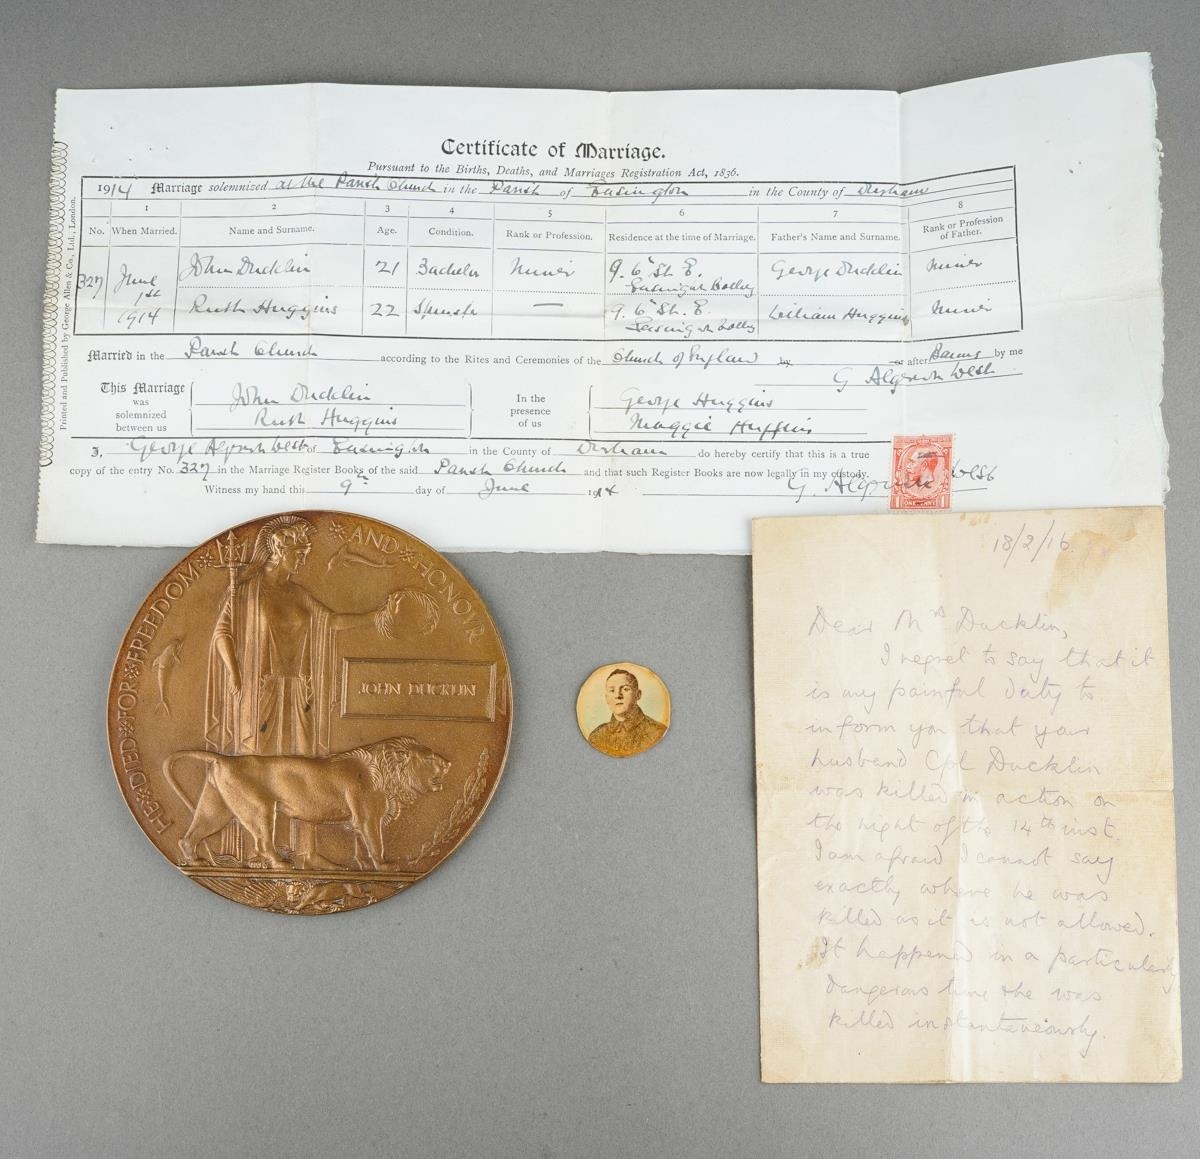 Certificate of Marriage.
Pursuant to the Births, Deaths, and Marriages Registration Act, 1836.
1914 Marriage solemnized at the Parish Church in the Parish of Easington in the County of Durham
1 2 3 4 5 6 7 8
No. When Married. Name and Surname. Age. Condition. Rank or Profession. Residence at the time of Marriage. Father's Name and Surname. Rank or Profession of Father.
327 June 1st 1914
John Ducklin 21 Bachelor Miner 9. 6th St. E. Easington Colliery George Ducklin Miner
Ruth Huggins 22 Spinster — 9. 6th St. E. Easington Colliery William Huggins Miner
Married in the Parish Church according to the Rites and Ceremonies of the Church of England by or after Banns by me
G West
This Marriage was solemnized between us
John Ducklin
Ruth Huggins
In the presence of us
George Huggins
Maggie Huggins
I, George West of Easington in the County of Durham do hereby certify that this is a true
copy of the entry No. 327 in the Marriage Register Books of the said Parish Church and that such Register Books are now legally in my custody.
Witness my hand this 9th day of June 1914 G West
Printed and Published by George Allen & Co., Ltd., London.
ONE PENNY
HE DIED FOR FREEDOM AND HONOVR
JOHN DUCKLIN
18/2/16
Dear Mrs Ducklin,
I regret to say that it
is my painful duty to
inform you that your
husband Cpl Ducklin
was killed in action on
the night of the 14th inst.
I am afraid I cannot say
exactly where he was
killed as it is not allowed.
It happened in a particularly
dangerous time & he was
killed instantaneously.